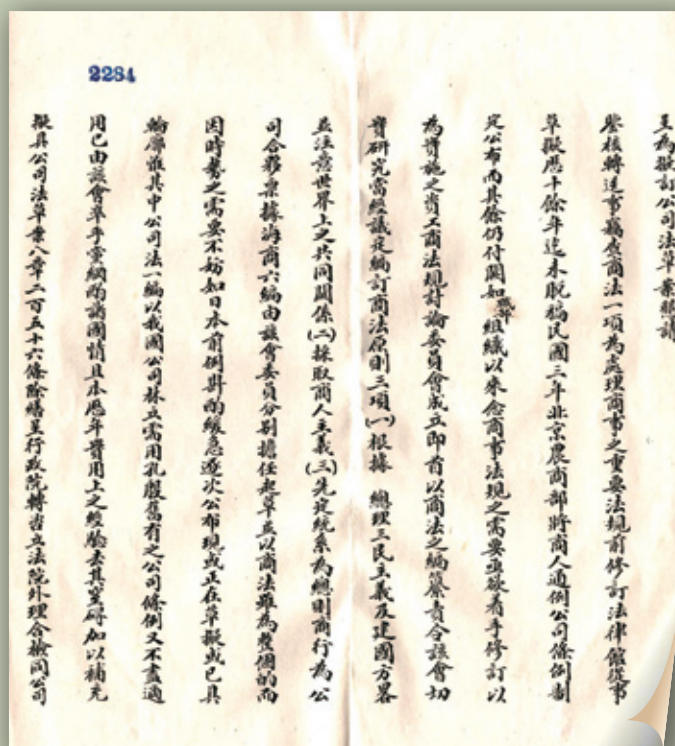 呈為擬訂公司法草案服請
鑒核轉送事竊查商法一項為處理商事之重要法規前修訂法律館從事
草擬歷十餘年迄未脫稿民國三年北京農商部將商人通例公司條例制
定公布而其餘仍付闕如 組織以來念商事法規之需要亟欲着手修訂以
為實施之資工商法規討論委員會成立即首以商法之編纂責令該會切
實研究當經議定編訂商法原則三項(一)根據 總理三民主義及建國方畧
並注意世界上之共同關係(二)採取商人主義(三)先定統系為總則商行為公
司合夥票據海商六編由該會委員分別擔任起草並以商法雖為整個的而
因時勢之需要不妨如日本前例斟酌緩急逐次公布現或正在草擬或已具
輪廓惟其中公司法一編以我國公司林立需用孔殷舊有之公司條例又不盡適
用已由該會草率完竣酌諸國情且本歷年費用上之經驗去其窒碍加以補充
擬具公司法草案八章二百五十六條除繕呈行政院轉咨立法院外理合檢同公司
2284